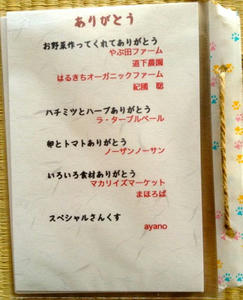 ありがとう
お野菜作ってくれてありがとう
やぶ田ファーム
道下農園
はるきちオーガニックファーム
紀國 聡
ハチミツとハーブありがとう
ラ・ターブルベール
卵とトマトありがとう
ノーザンノーサン
いろいろ食材ありがとう
マカリイズマーケット
まほろば
スペシャルさんくす
ayano